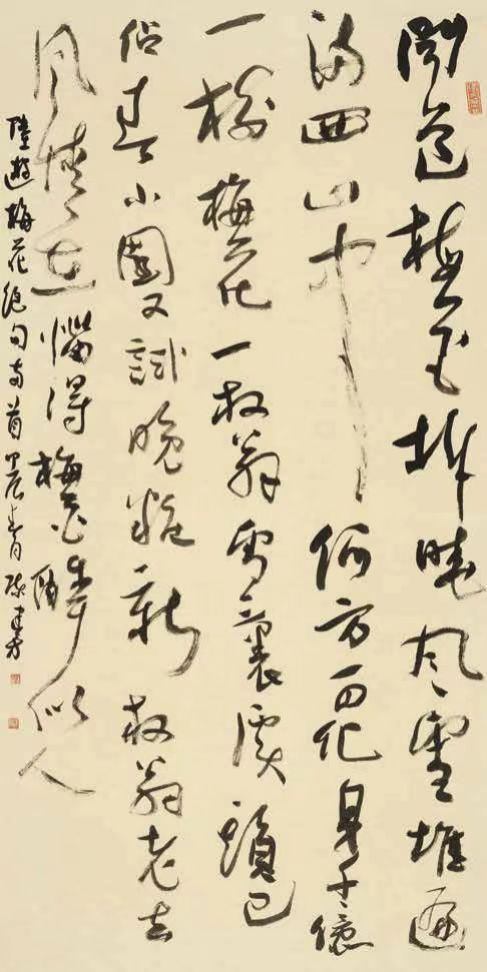 聞道梅花坼曉風雪堆遍
滿四山中何方可化身千億
一樹梅花一放翁雪裏溪頭已
佔春小園又試晚粧新放翁老去
風情在惱得梅花醉似人
陸遊梅花絕句两首甲辰春月